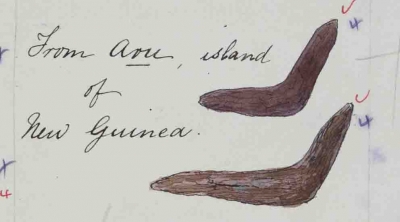 From Aou, island
of
New Guinea.
4
4
4